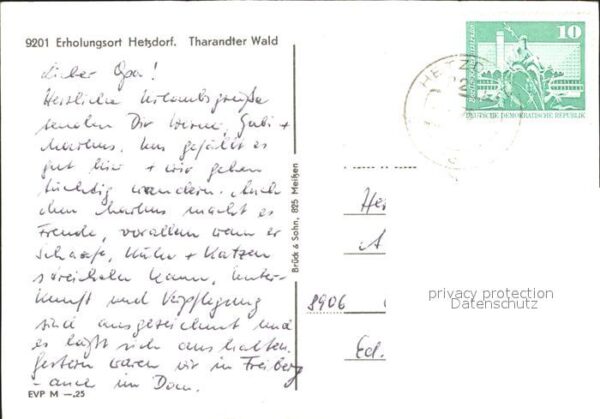 9201 Erholungsort Hetzdorf. Tharandter Wald
Lieber Opa!
Herzliche Urlaubsgrüße
senden Dir Werne, Gabi +
Markus. Uns gefällt es
gut hier + wir gehen
tüchtig wandern. Auch
dem Markus macht es
Freude, vorallem wenn er
Schaafe, Kühe + Katzen
streicheln kann. Unter-
kunft und Verpflegung
sind ausgezeichnet und
es läßt sich aushalten.
Gestern waren wir in Freiberg
- auch im Dom.
EVP M —,25
Brück & Sohn, 825 Meißen
10
DEUTSCHE DEMOKRATISCHE REPUBLIK
HETZD
He
A
8906
Ed.
privacy protection
Datenschutz